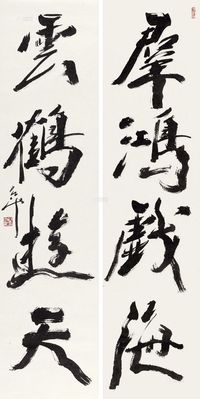 羣鴻戲海
雲鶴遊天